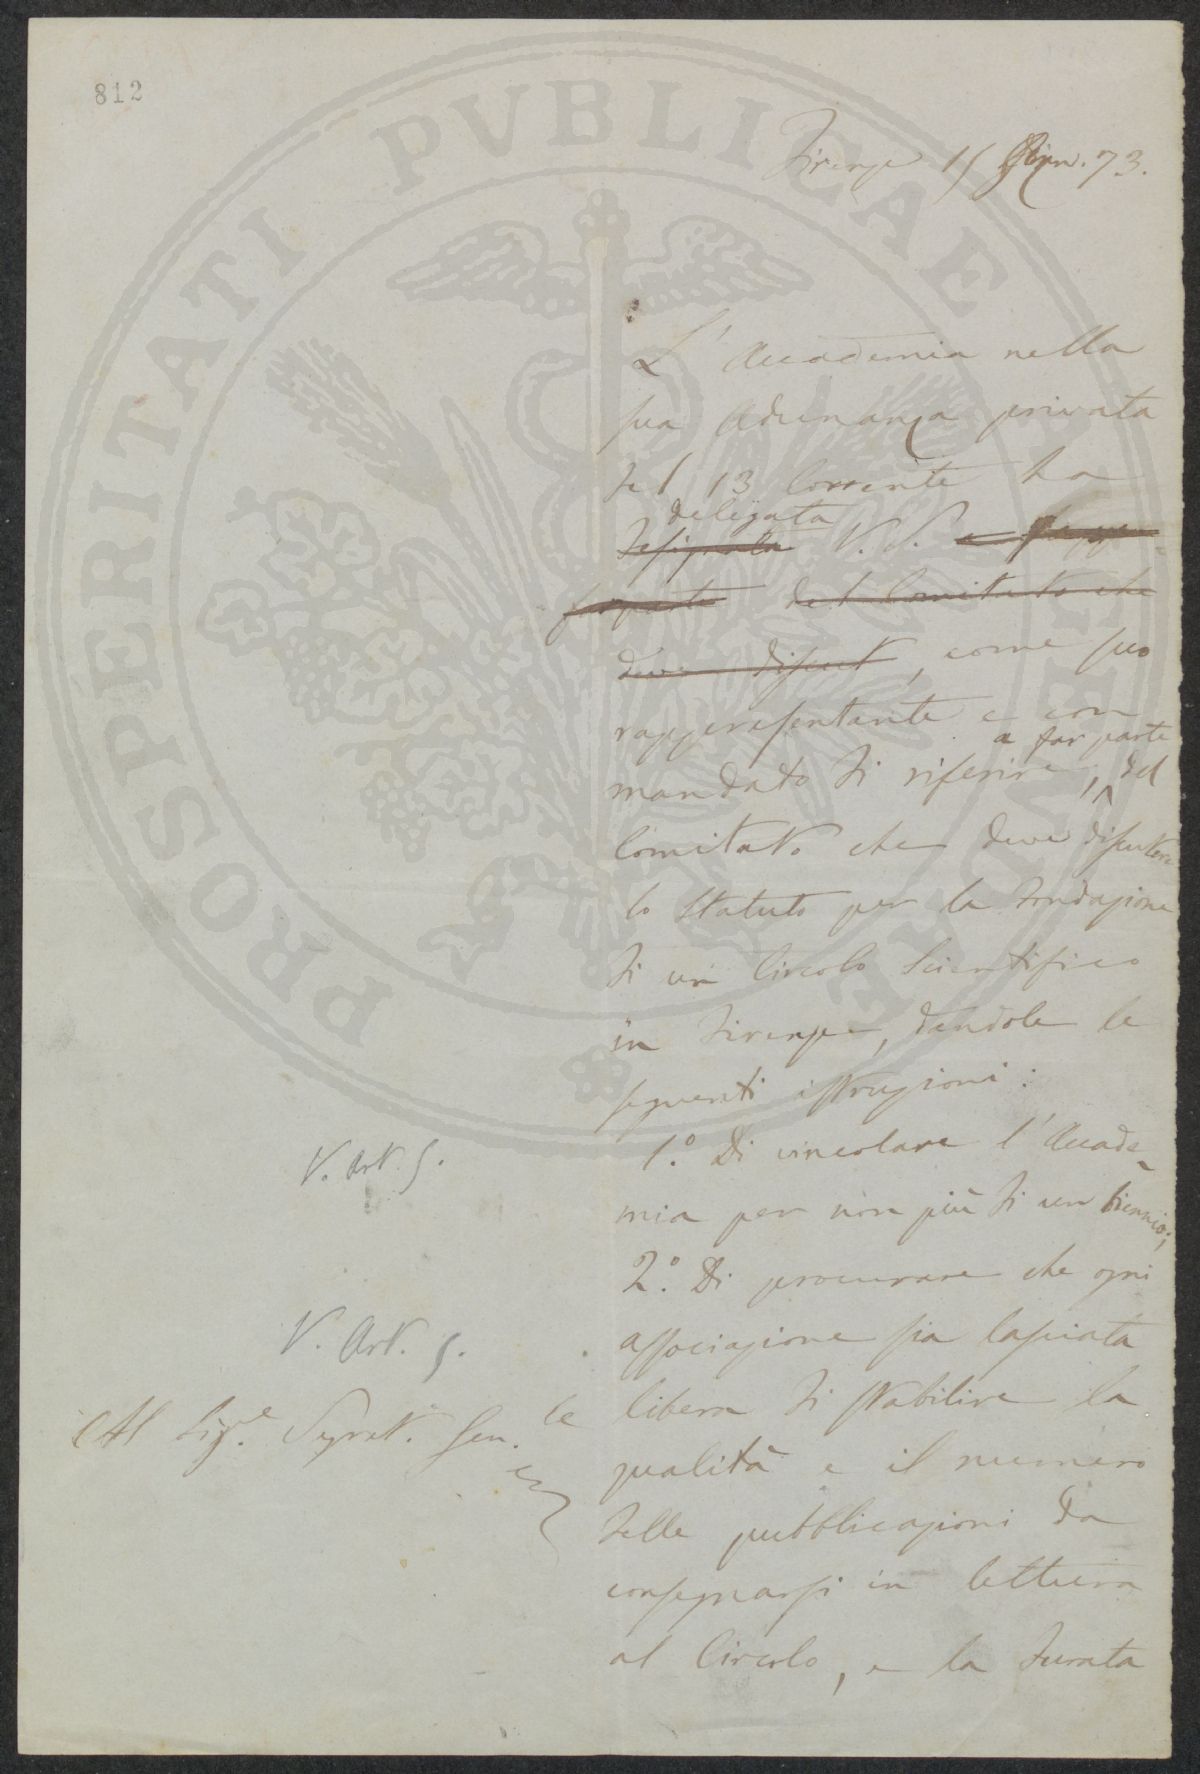 812
PROSPERITATI PVBLICAE AVGENDAE
Firenze 15 Genn. 73.
L' Accademia nella
sua adunanza privata
del 13 Corrente ha
delegata
designata V. S. e
far parte del Comitato che
deve discut, come suo
rappresentante e con
a far parte
mandato di riferire, del
Comitato che deve discutere
lo Statuto per la fondazione
di un Circolo Scientifico
in Firenze, dandole le
seguenti istruzioni:
V. Art. 5.
1.° Di vincolare l'Accade-
mia per non più di un biennio;
2.° Di procurare che ogni
V. Art. 5.
associazione sia lasciata
Al Sig.e Segret. Gen.le
libera di stabilire la
qualità e il numero
delle pubblicazioni da
consegnarsi in lettura
al Circolo, e la durata